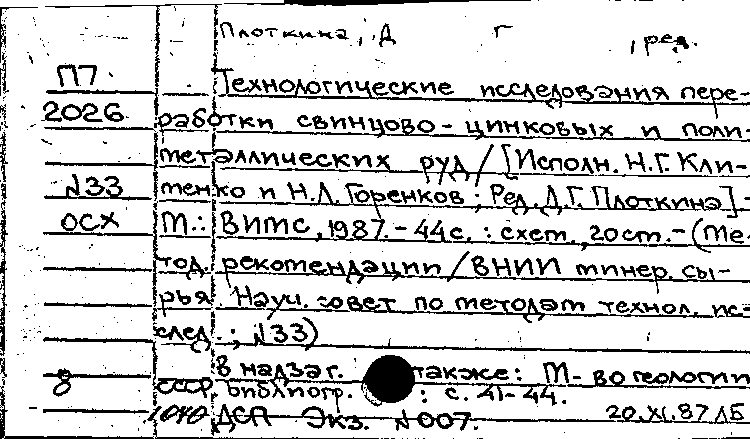 Плоткина, Д г , ред.
П7. Технологические исследования пере-
2026 работки свинцово-цинковых и поли-
металлических руд / [Исполн. Н.Г. Кли-
№33 менко и Н.Л. Горенков; Ред. Д.Г. Плоткина].-
ОСХ М.: ВИМС, 1987.-44с. : схем., 20см.-(Ме-
тод. рекомендации / ВНИИ минер. сы-
рья. Науч. совет по методам технол. ис-
след. ; №33)
В надзаг. также: М-во геологии
8 СССР. Библиогр. : с. 41-44.
1040 ДСП Экз. №007. 20.XI.87 ЛБ